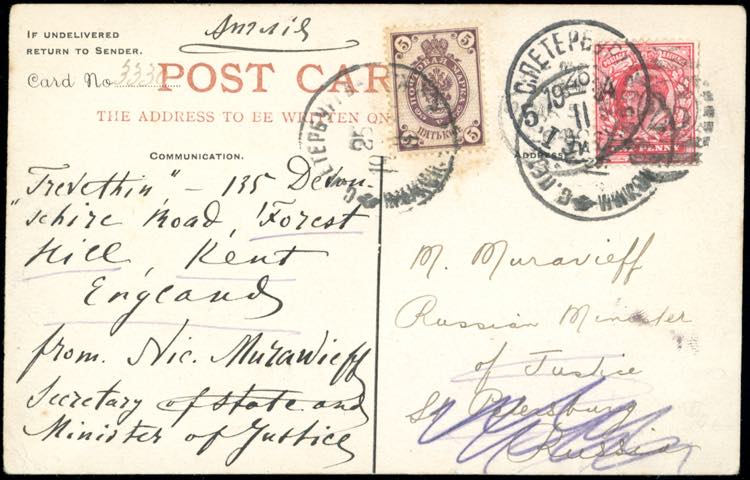 IF UNDELIVERED
RETURN TO SENDER.
Англія
Card No 3330
POST CAR
THE ADDRESS TO BE WRITTEN ON
COMMUNICATION.
"Trevethin" – 135 Devon-
shire Road, Forest
Hill, Kent
England
from. Nic. Murawieff
Secretary of State and
Minister of Justice
5 5
ПОЧТОВАЯ МАРКА
ПЯТЬ КОП
5 5
С.ПЕТЕРБУРГ
25
С.ПЕТЕРБУР
5
11
PENNY
M. Muravieff
Russian Minister
of Justice
St Petersburg
Russia